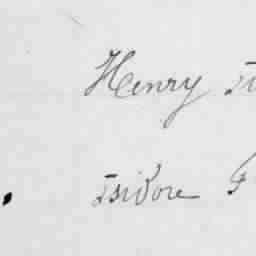 Henry
Isidore